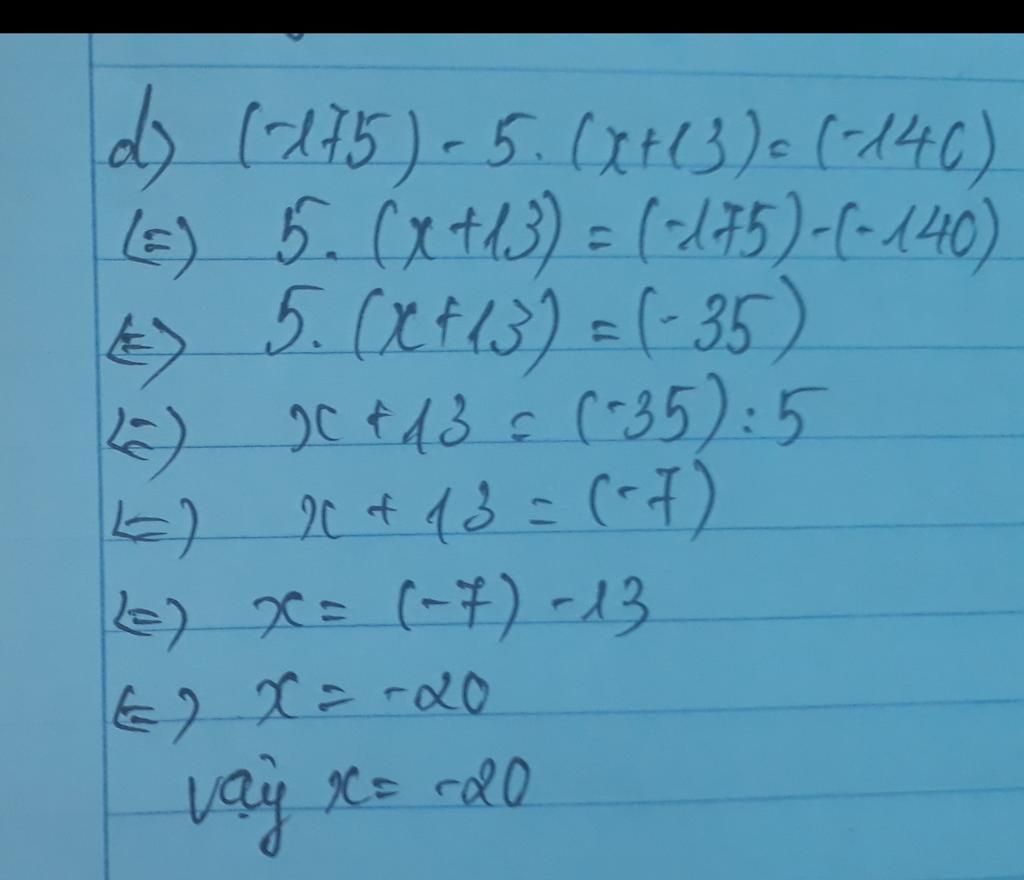 d) (-175) - 5. (x+13) = (-140)
(=) 5. (x+13) = (-175)-(-140)
(=) 5. (x+13) = (-35)
(=) x + 13 = (-35) : 5
(=) x + 13 = (-7)
(=) x = (-7) - 13
(=) x = -20
vậy x = -20